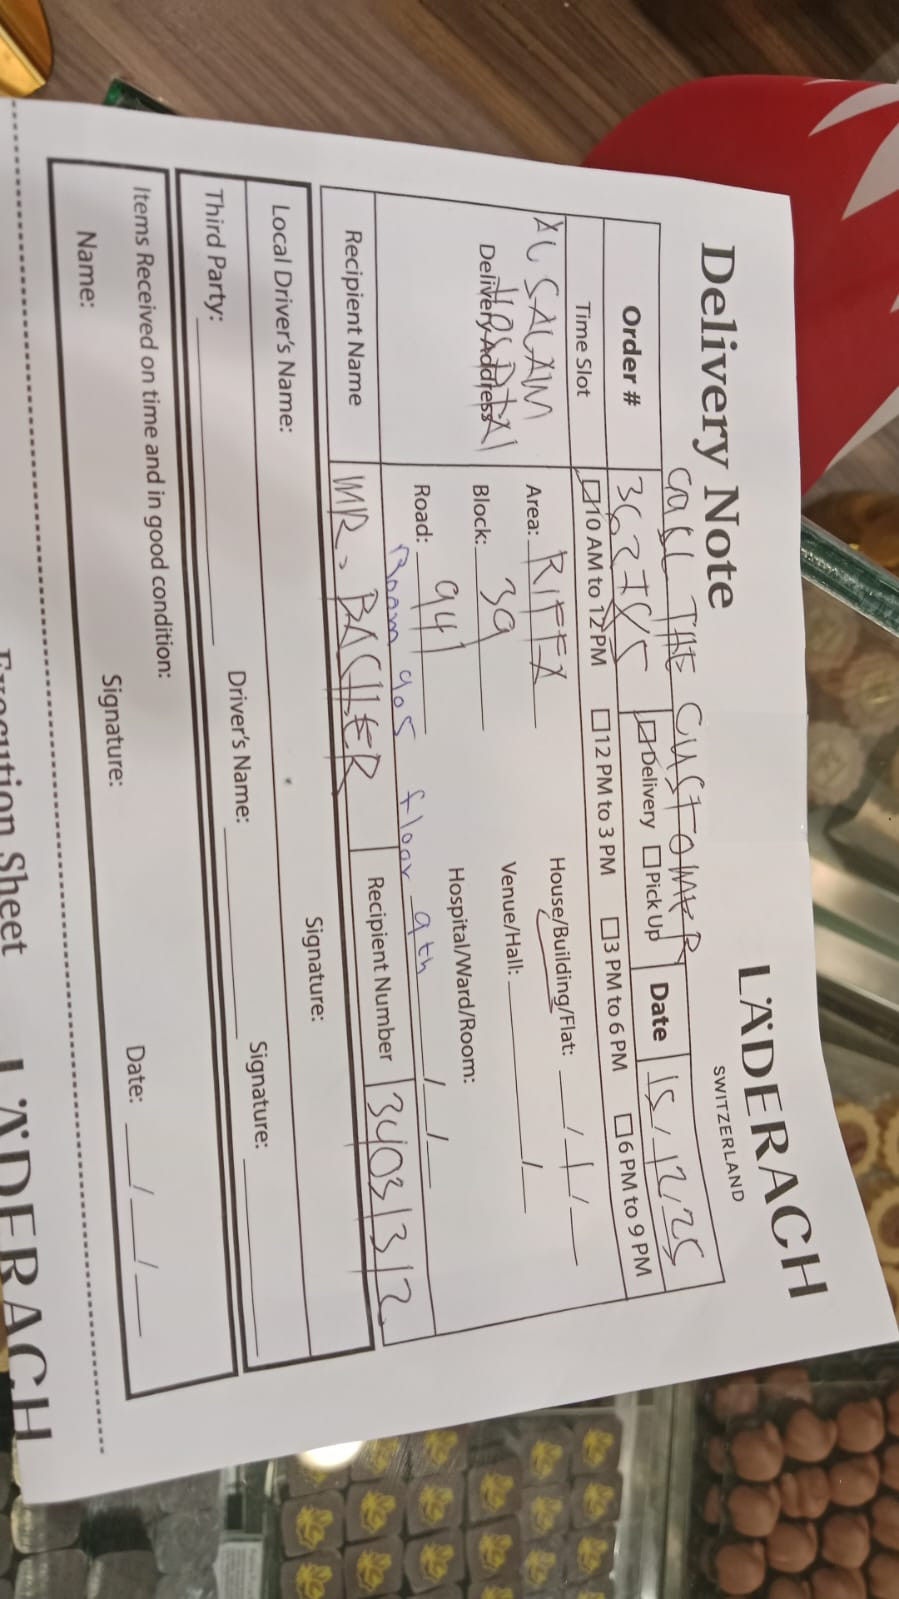 Delivery Note
LÄDERACH
SWITZERLAND
CALL THE CUSTOMER
Order #
362785
Delivery
Pick Up
Date
15/12/25
Time Slot
10 AM to 12 PM
12 PM to 3 PM
3 PM to 6 PM
6 PM to 9 PM
AL SALAM
HOSPITAL
Delivery Address
Area: RIFFA
House/Building/Flat: / /
Block: 39
Venue/Hall: /
Road: 941
Hospital/Ward/Room:
Room 905 floor 9th / /
Recipient Name
MR. BACHER
Recipient Number
34031312
Local Driver's Name:
Signature:
Third Party:
Driver's Name:
Signature:
Items Received on time and in good condition:
Name:
Signature:
Date: / /
Execution Sheet
LÄDERACH